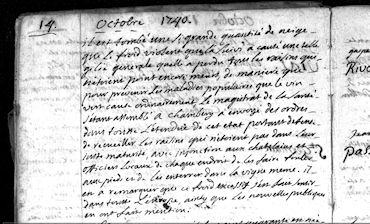 14. Octobre 1740.
il est tombé une si grande quantité de neige
que le froid violent que l'a suivi a causé une telle
gelée generale quelle a perdu tous les raisins qui
n'étoient point encor meurs, de maniere que
pour prevenir les maladies populaires que le vin
vert cause ordinairement, le magistrat de la santé
s'étant assemblé a Chambery a envoyé des ordres
dans toutte l'étendue de cet etat portants defense
de recueillir les raisins qui n'étoient pas dans leur
juste maturité, avec injonction aux chatelains et
officiers locaux de chaque endroit de les faire fouler
aux pieds et de les enterrer dans la vigne meme. il
en a remarquer que ce froid excessif s'est fait sentir
dans toute l'Europe, ainsy que les nouvelles publiques
en ont fait mention.
quarante en
Riva
Jean
pas